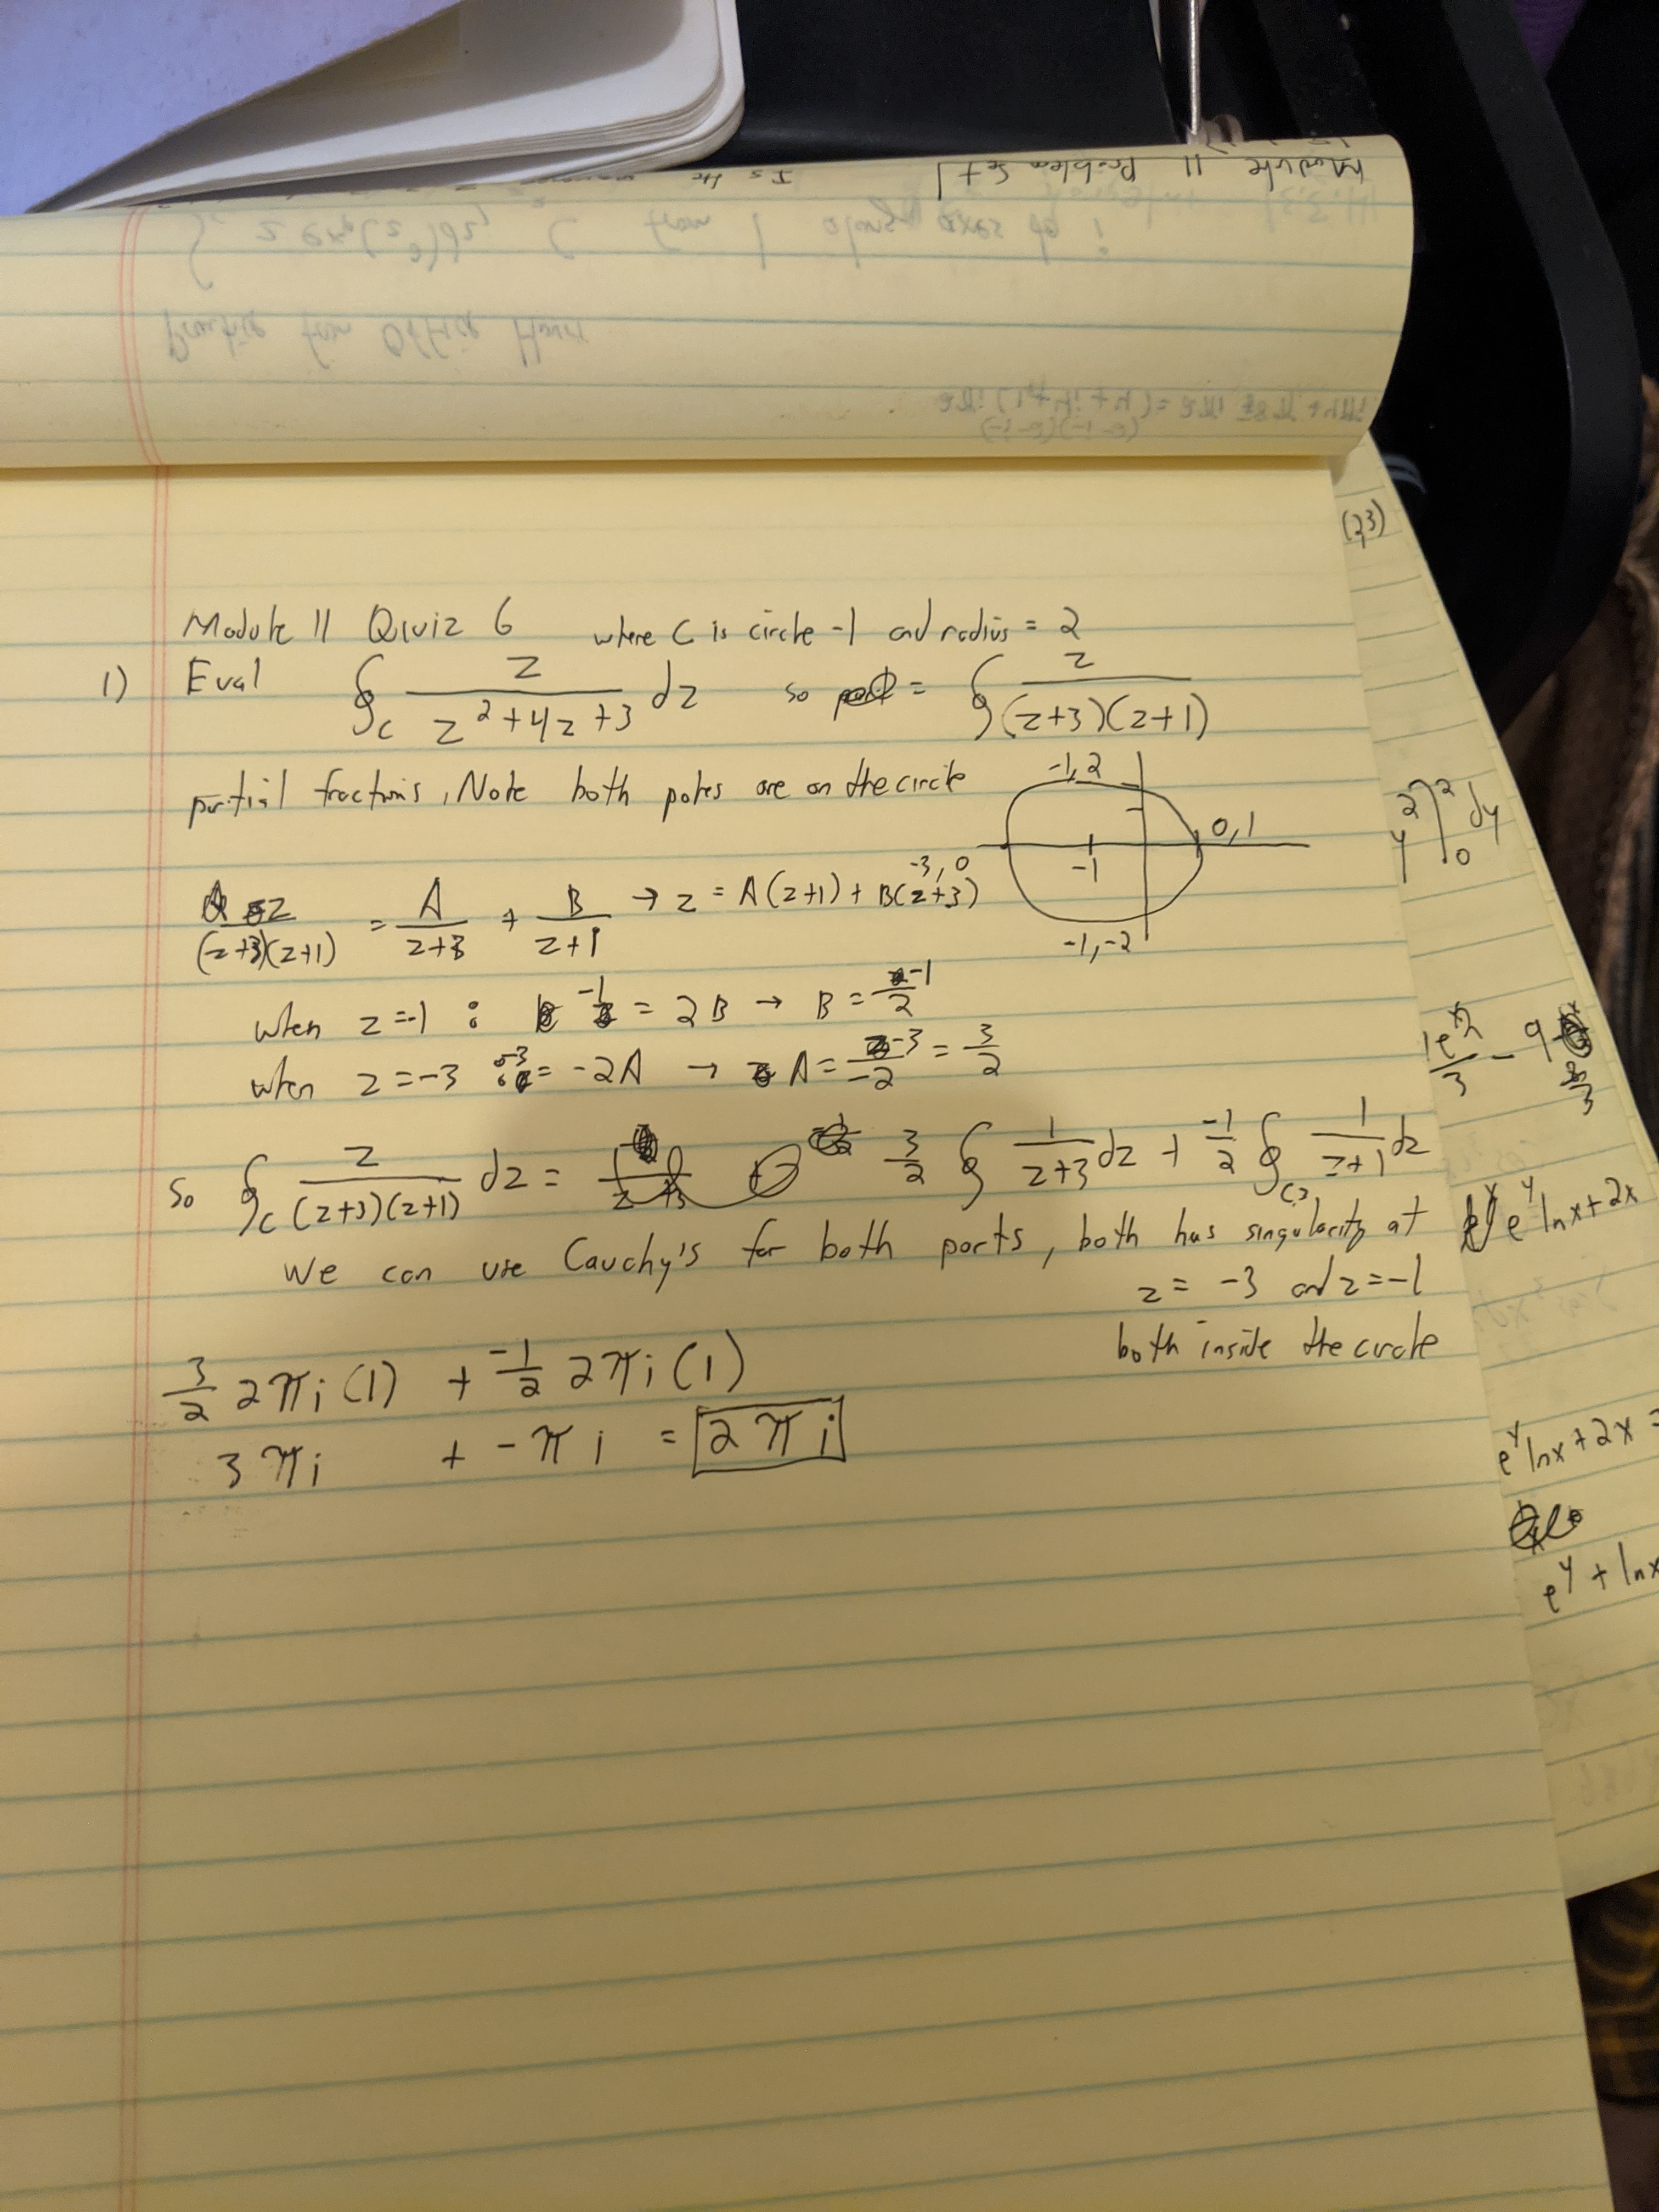 Module 11 Problem Set
Practice from Office Hours
(2,3)
Module 11 Quiz 6 where C is circle -1 and radius = 2
1) Eval ∮_C z/(z²+4z+3) dz so = ∮ z/((z+3)(z+1))
partial fractions, Note both poles are on the circle
-1,2
0,1
-1
-3,0
-1,-2
z/((z+3)(z+1)) = A/(z+3) + B/(z+1) → z = A(z+1) + B(z+3)
when z=-1 : -1 = 2B → B = -1/2
when z=-3 : -3 = -2A → A = -3/-2 = 3/2
so ∮_C z/((z+3)(z+1)) dz = 3/2 ∮ 1/(z+3) dz + -1/2 ∮ 1/(z+1) dz
We can use Cauchy's for both parts, both has singularity at
z = -3 and z=-1
both inside the circle
3/2 2πi(1) + -1/2 2πi(1)
3πi + -πi = 2πi
dy
e^y lnx+2x
e^y lnx+2x =
e^y + lnx